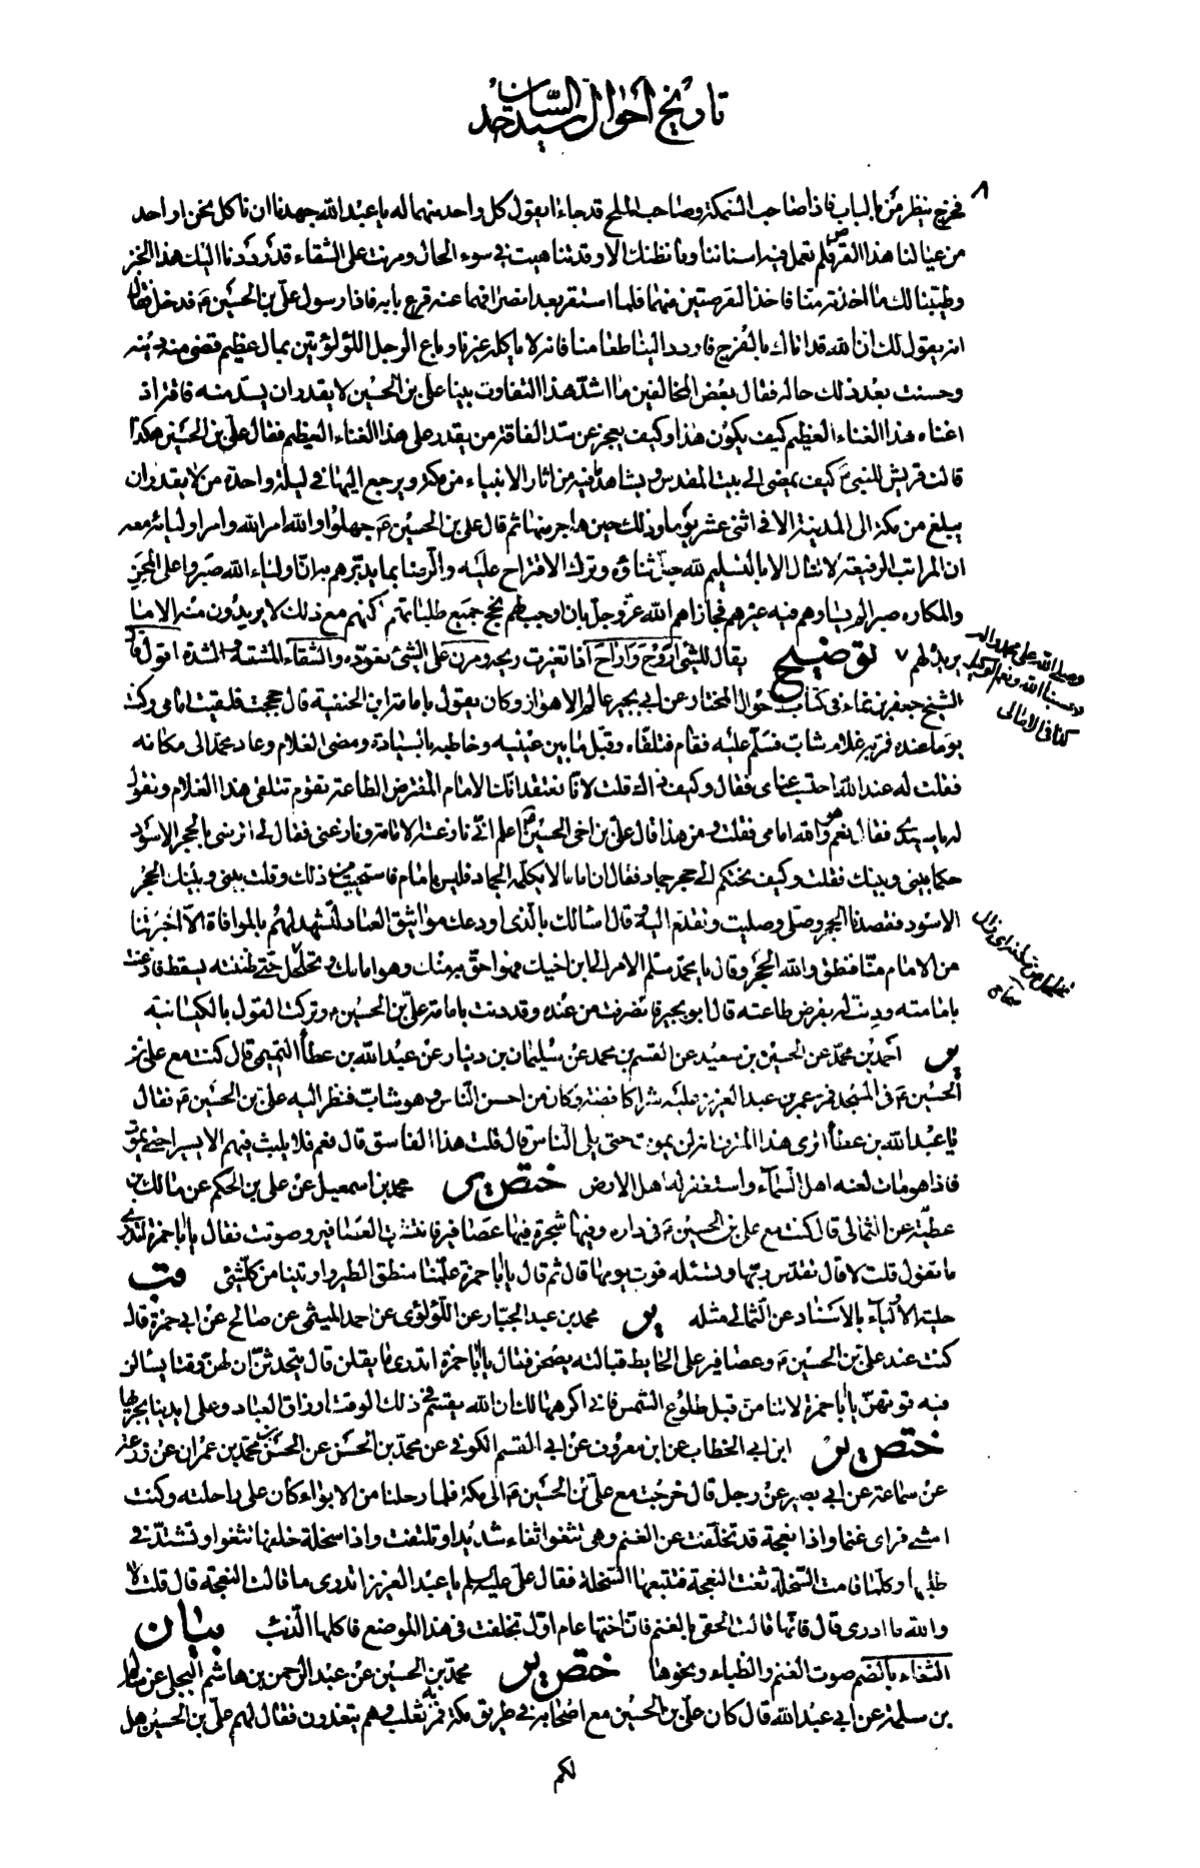 تاريخ احوال سيد الساجدين
٨
فخرج ينظر من بالباب فاذا صاحب السمكة وصاحب الملح قد جاءا يقول كل واحد منهما له يا عبد الله جهدنا ان ناكل نحن او احد
من عيالنا هذا القرص فلم تعمل فيه اسناننا وما نظنك الا وقد تناهيت في سوء الحال ومرنت على الشقاء قد رددنا اليك هذا الخبز
وطيبنا لك ما اخذته منا فاخذ القرصتين منهما فلما استقر بعد انصرافهما عنه قرع بابه فاذا رسول علي بن الحسين ع فدخل فقال
انه يقول لك ان الله قد اتاك بالفرج فاردد الينا طعامنا فانه لا ياكله غيرنا وباع الرجل اللؤلؤتين بمال عظيم قضى منه دينه
وحسنت بعد ذلك حاله فقال بعض المخالفين ما اشد هذا التفاوت بينا علي بن الحسين لا يقدر ان يسد منه فاقة اذ
اغناه هذا الغناء العظيم كيف يكون هذا وكيف يعجز عن سد الفاقة من يقدر على هذا الغناء العظيم فقال علي بن الحسين هكذا
قالت قريش للنبي ص كيف يمضي الى بيت المقدس ويشاهد ما فيه من اثار الانبياء من مكة ويرجع اليها في ليلة واحدة من لا يقدر ان
يبلغ من مكة الى المدينة الا في اثنى عشر يوما وذلك حين هاجر منها ثم قال علي بن الحسين ع جهلوا والله امر الله وامر اوليائه معه
ان المراتب الرفيعة لا تنال الا بالتسليم لله جل ثناؤه وترك الاقتراح عليه والرضا بما يدبرهم به ان اولياء الله صبروا على المحن
والمكاره صبرا لم يساوهم فيه غيرهم فجازاهم الله عز وجل بان اوجب لهم نجح جميع طلباتهم لكنهم مع ذلك لا يريدون منه الا ما
يريد لهم توضيح يقال للشئ اروح واراح اذا تغيرت ريحه ومرن على الشئ تعوده والشقاء المشقة والشدة اقول قال
الشيخ جعفر بن نماء في كتاب احوال المختار عن ابي بجير عالم الاهواز وكان يقول بامامة ابن الحنفية قال حججت فلقيت امامي وكنت
يوما عنده فمر به غلام شاب فسلم عليه فقام فتلقاه وقبل ما بين عينيه وخاطبه بالسيادة ومضى الغلام وعاد محمد الى مكانه
فقلت له عند الله احتسب عناى فقال وكيف ذاك قلت لانا نعتقد انك الامام المفترض الطاعة تقوم تتلقى هذا الغلام وتقول
له يا سيدى فقال نعم هو والله امامى فقلت ومن هذا قال علي بن اخى الحسين اعلم اني نازعته الامامة ونازعني فقال لى اترضى بالحجر الاسود
حكما بيني وبينك فقلت وكيف نحتكم الى حجر جماد فقال ان اماما لا يكلمه الجماد فليس بامام فاستحييت من ذلك وقلت بيني وبينك الحجر
الاسود فقصدنا الحجر وصلى وصليت وتقدم اليه وقال اسالك بالذى اودعك مواثيق العباد لتشهد لهم بالموافاة الا اخبرتنا
من الامام منا فنطق والله الحجر وقال يا محمد سلم الامر الى ابن اخيك فهو احق به منك وهو امامك وتحلحل حتى ظننته يسقط فاذعنت
بامامته ودنت له بفرض طاعته قال ابو بجير فانصرفت من عنده وقد دنت بامامة علي بن الحسين ع وتركت القول بالكيسانية
ير احمد بن محمد عن الحسين بن سعيد عن القسم بن محمد عن سليمان بن دينار عن عبد الله بن عطأ التميمى قال كنت مع على بن
الحسين ع فى المسجد فمر عمر بن عبد العزيز عليه شراكا فضة وكان من احسن الناس وهو شاب فنظر اليه على بن الحسين ع فقال
يا عبد الله بن عطأ اترى هذا المترف انه لن يموت حتى يلى الناس قال قلت هذا الفاسق قال نعم فلا يلبث فيهم الا يسيرا حتى يموت
فاذا هو مات لعنه اهل السمآء واستغفر له اهل الارض ختص ير محمد بن اسمعيل عن على بن الحكم عن مالك بن
عطية عن الثمالى قال كنت مع على بن الحسين ع فى داره وفيها شجرة فيها عصافير فانتشرت العصافير وصوتت فقال يا ابا حمزة اتدرى
ما تقول قلت لا قال تقدس ربها وتسئله قوت يومها قال ثم قال يا ابا حمزة علمنا منطق الطير واوتينا من كل شئ قب
حلية الاولياء بالاسناد عن الثمالى مثله ير محمد بن عبد الجبار عن اللؤلؤى عن احمد الميثمى عن صالح عن ابى حمزة قال
كنت عند على بن الحسين ع وعصافير على الحايط قبالته يصحن فقال يا ابا حمزة اتدرى ما يقلن قال يتحدثن ان لهن وقتا يسالن
فيه قوتهن يا ابا حمزة لا تنامن قبل طلوع الشمس فانى اكرهها لك ان الله يقسم فى ذلك الوقت ارزاق العباد وعلى ايدينا يجريها
ختص ير ابن ابى الخطاب عن ابن معروف عن ابى القسم الكوفى عن محمد بن الحسن عن الحسن بن محمد بن عمران عن زرعة
عن سماعة عن ابى بصير عن رجل قال خرجت مع على بن الحسين ع الى مكة فلما رحلنا من الابواء كان على راحلته وكنت
امشى فراى غنما واذا نعجة قد تخلفت عن الغنم وهى تثغو ثغاء شديدا وتلتفت واذا سخلة خلفها تثغو وتشتد فى
طلبها وكلما قامت السخلة ثغت النعجة فتتبعها السخلة فقال على عليه السلم يا عبد العزيز اتدرى ما قالت النعجة قال قلت لا
والله ما ادرى قال فانها قالت الحقى بالغنم فان اختها عام اول تخلفت فى هذا الموضع فاكلها الذئب بيان
الثغاء بالضم صوت الغنم والظباء ونحوها ختص ير محمد بن الحسين عن عبد الرحمن بن هاشم البجلى عن سالم
بن سلمة عن ابى عبد الله قال كان على بن الحسين مع اصحابه فى طريق مكة فمر به ثعلب وهم يتغدون فقال لهم على بن الحسين هل
لكم
وصلى الله على محمد واله
وحسبنا الله ونعم الوكيل
كذا في الامالى